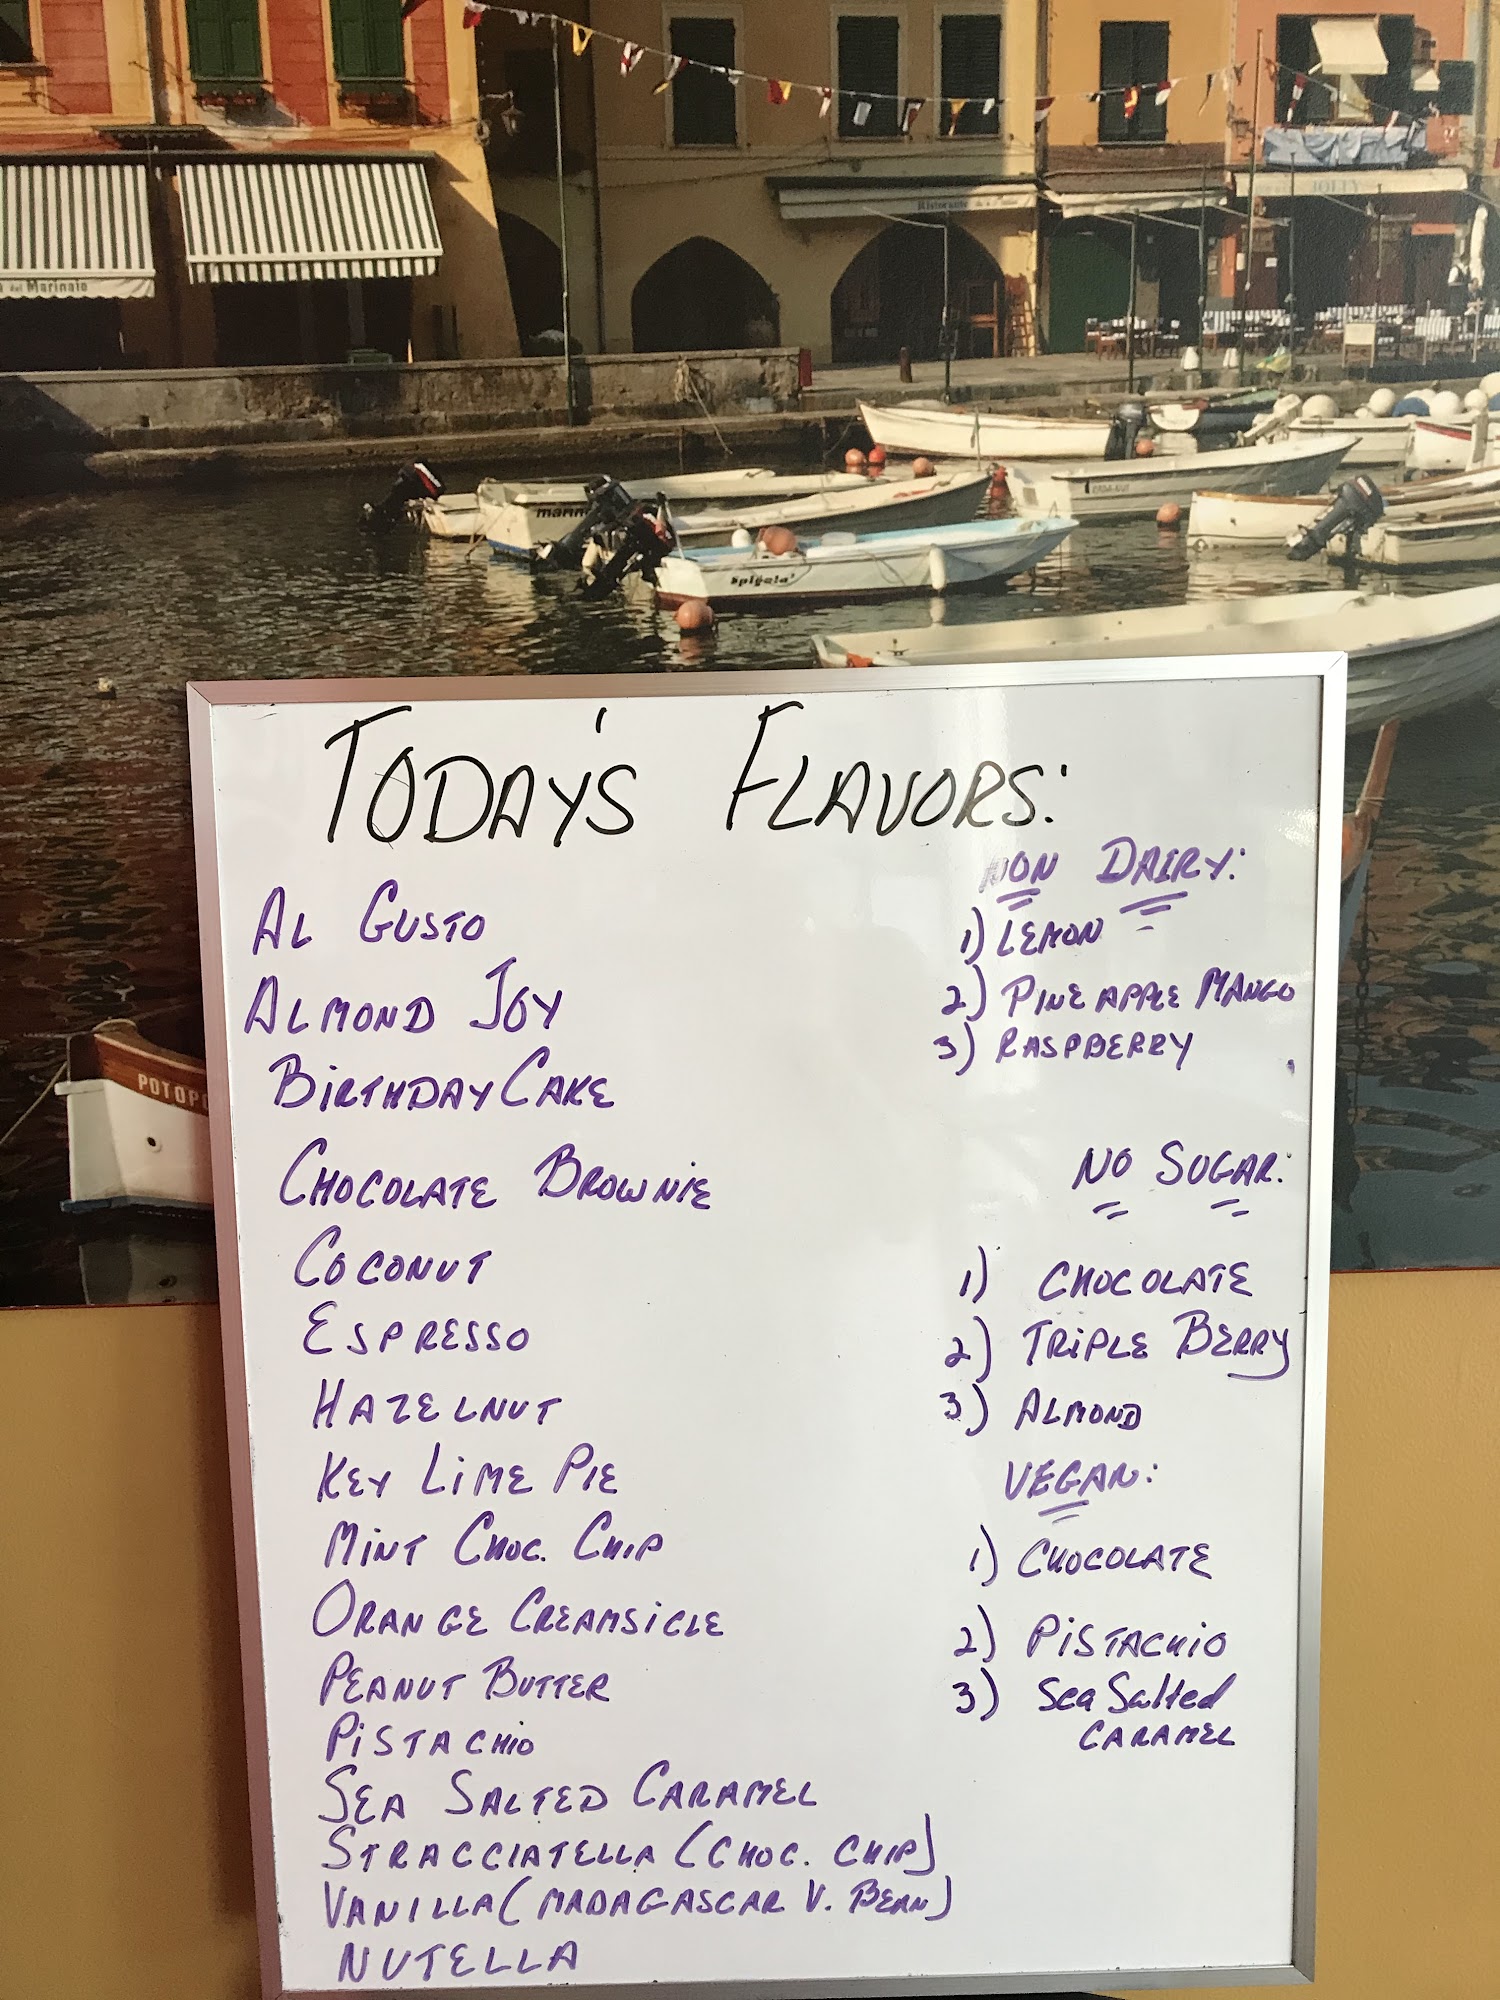 del Marinaio
Ristorante
JOLLY
marin
Spigola
POTOPO
TODAY'S FLAVORS:
AL GUSTO
ALMOND JOY
BIRTHDAY CAKE
CHOCOLATE BROWNIE
COCONUT
ESPRESSO
HAZELNUT
KEY LIME PIE
MINT CHOC. CHIP
ORANGE CREAMSICLE
PEANUT BUTTER
PISTACHIO
SEA SALTED CARAMEL
STRACCIATELLA (CHOC. CHIP)
VANILLA (MADAGASCAR V. BEAN)
NUTELLA
NON DAIRY:
1) LEMON
2) PINEAPPLE MANGO
3) RASPBERRY
NO SUGAR:
1) CHOCOLATE
2) TRIPLE BERRY
3) ALMOND
VEGAN:
1) CHOCOLATE
2) PISTACHIO
3) Sea Salted
CARAMEL